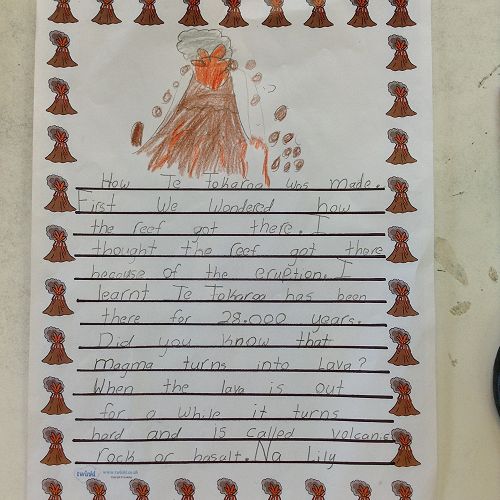 How Te Tokaroa was made.
First We Wondered how
the reef got there. I
thought the reef got there
because of the eruption. I
learnt Te Tokaroa has been
there for 28.000 years.
Did you know that
magma turns into Lava?
When the lava is out
for a while it turns
hard and is called volcanic
rock or basalt. Na Lily
twinkl www.twinkl.co.uk